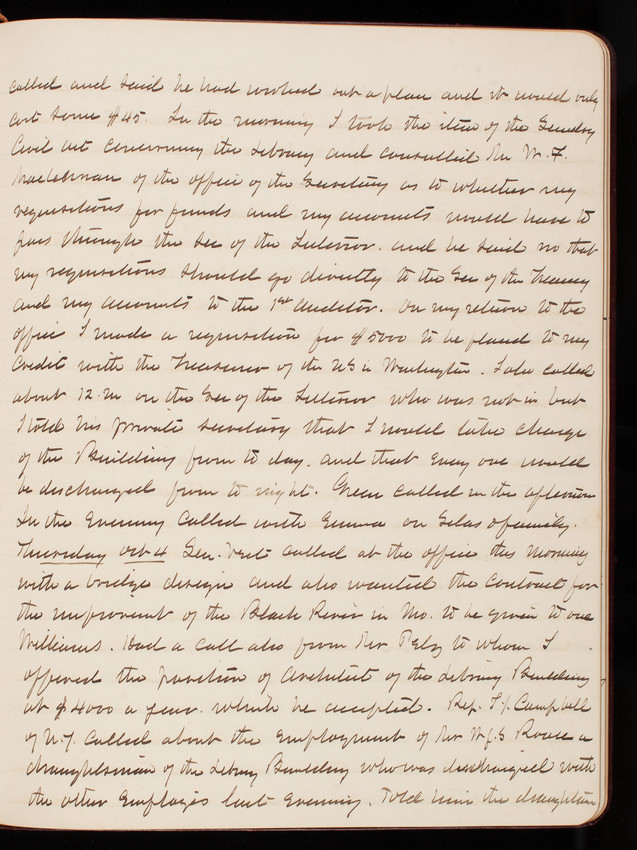 called and said he had worked out a plan and it would only
cost some $45. In the morning I took the item of the Sundry
Civil act concerning the Library and consulted Mr W. F.
Maclennan of the office of the Secretary as to whether my
requisitions for funds and my accounts would have to
pass through the Sec of the Interior. and he said no that
my requisitions should go directly to the Sec of the Treasury
and my accounts to the 1st auditor. On my return to the
office I made a requisition for $5000 to be placed to my
Credit with the Treasurer of the US in Washington. I also called
about 12. M on the Sec of the Interior who was not in but
I told his private secretary that I would take charge
of the Building from to day. and that every one would
be discharged from to night. Green called in the afternoon
In the Evening called with Emma on family.
Thursday Oct 4 Gen. Vest called at the office this morning
with a bridge design and also wanted the contract for
the improvent of the Black River in Mo. to be given to one
Williams. Had a call also from Mr Pelz to whom I
offered the position of Architect of the Library Building
at $4000 a year. which he accepted. Rep. T. J. Campbell
of N.Y. Called about the Employment of Mr a
draughtsman of the Library Building who was discharged with
the other Employés last Evening. Told him the draughtsmen